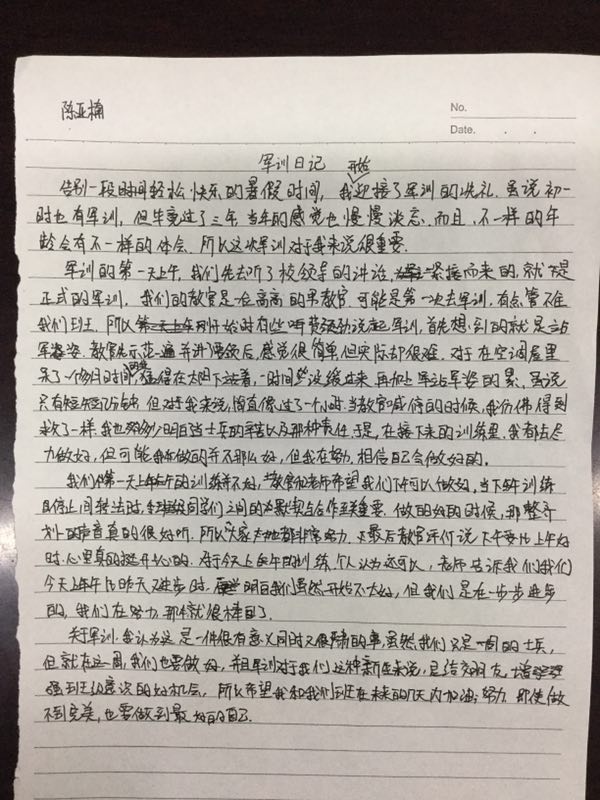 陈亚楠
No.
Date. . .
军训日记
开始
告别一段时间轻松快乐的暑假时间，我迎接了军训的洗礼。虽说初一
时也有军训，但毕竟过了三年，当年的感觉也慢慢淡忘。而且，不一样的年
龄会有不一样的体会。所以这次军训对于我来说很重要。
军训的第一天上午，我们先去听了校领导的讲话，紧接而来的，就是
正式的军训，我们的教官是一位高高的男教官，可能是第一次去军训，有点管不住
我们班，所以开始时有些听。说起军训，首先想到的就是站
军姿，教官先示范一遍并讲要领后，感觉很简单但实际却很难。对于在空调屋里
呆了一个假期时间的我，站在太阳下，一时间没缓过来，再加上军站军姿的累，虽说
只有短短25分钟，但对于我来说，简直像过了一个小时，当教官喊停的时候，我仿佛得到
救了一样，我也明白当士兵的辛苦以及那种责任，于是，在接下来的训练里，我都去尽
力做好，但可能我做的并不那么好，但我在努力，相信自己会做好的。
我们第一天上午的训练并不好，教官和老师希望我们下午可以做好，当下午训练
到停止间转法时，同学们之间的默契与合作至关重要，做的好的时候，那整齐
划一的声音真的很好听，所以大家都非常努力，最后教官评价说下午要比上午好
时，心里真的挺开心的。对于今天上午的训练，个人认为还可以，老师告诉我们我们
今天上午比昨天进步时，明白我们虽然开始不太好，但我们是在一步步进步
的，我们在努力，那样就很棒了。
关于军训，我认为这是一件很有意义同时又很的事，虽然我们只是一周的士兵，
但就在这一周，我们也要做好，并且军训对于我们这种新生来说，是结交朋友，增
强班级意识的好机会，所以希望我和我们班在未来的几天内加油，努力，即使做
不到完美，也要做到最好的自己。